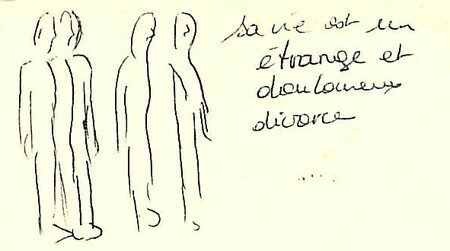 sa vie est un
étrange et
douloureux
divorce
.....